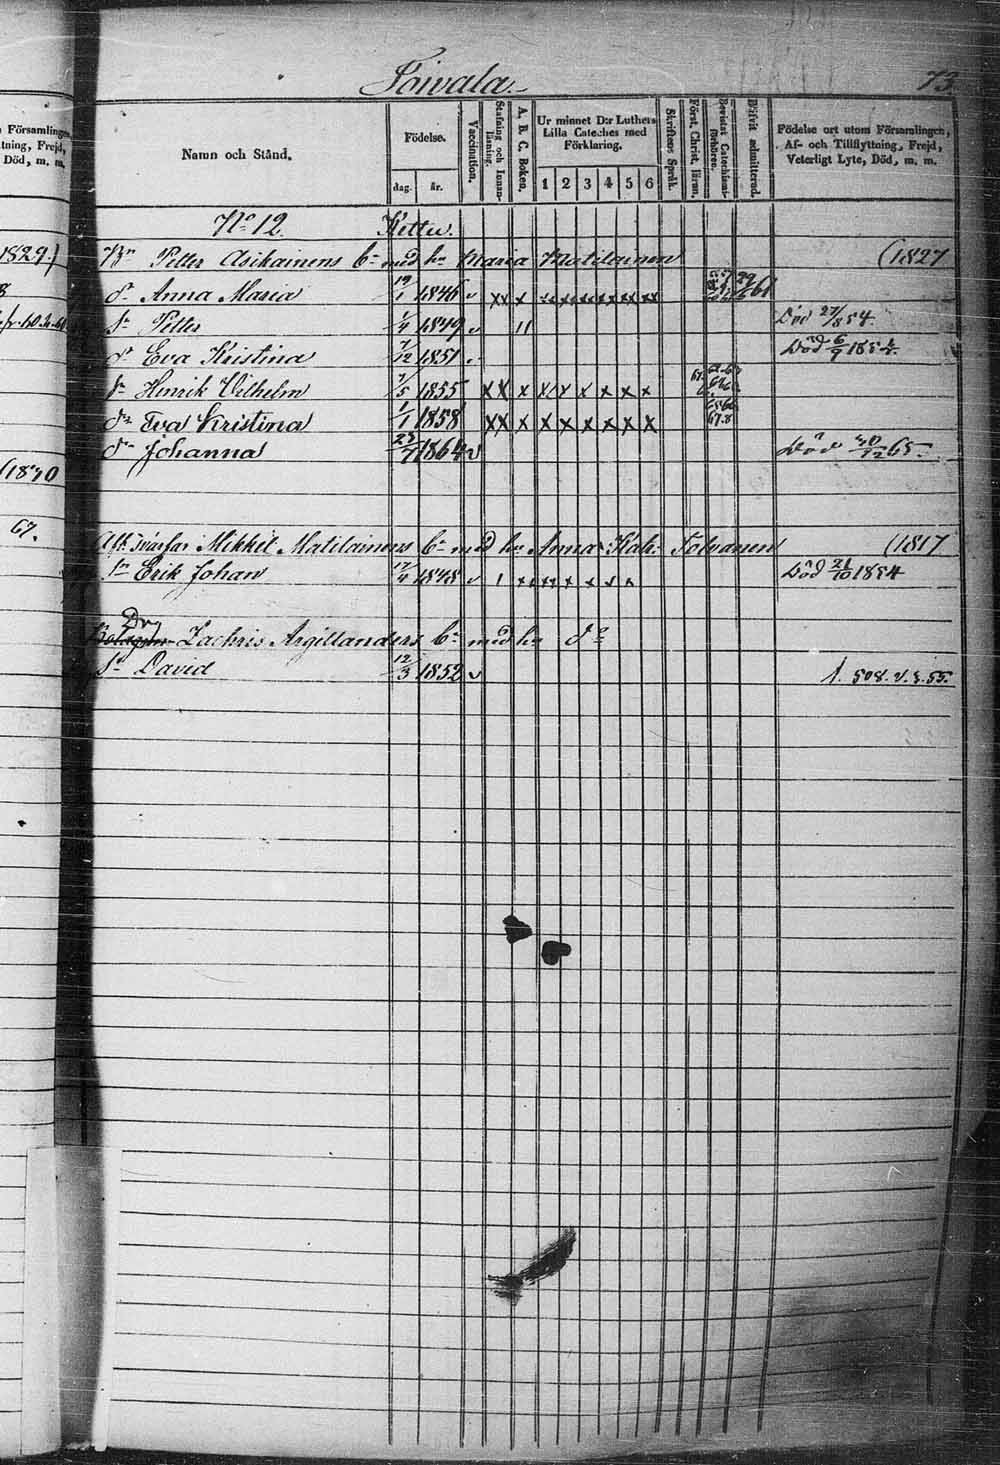 Toivala.
73.
Församlingen,
ttning, Frejd,
Död, m. m.
Namn och Stånd.
Födelse.
dag. år.
Vaccination.
Stafning och Innanläsning.
A. B. C. Boken.
Ur minnet D:r Luthers Lilla Cateches med Förklaring.
1 2 3 4 5 6
Skriftens Språk.
Först. Christ. läran.
Bevistat Catechismi-förhören.
Blifvit admitterad.
Födelse ort utom Församlingen, Af- och Tillflyttning, Frejd, Veterligt Lyte, Död, m. m.
No 12. Kettu.
1829.)
Petter Asikainens bn med hu Maria Matilainen (1827
dr Anna Maria 19/1 1846 v xx x
sn Petter 1/4 1849 v 11 Död 27/8 54.
dr Eva Kristina 7/12 1851 Död 6/9 185
sn Henrik Vilhelm 7/5 1855 xx x x x x x x
dr Eva Kristina 1/1 1858 xx x x x x x x x
dr Johanna 23/7 1864 v Död 30/12 65
(1840
67.
Afl. svärfar Mikkel Matilainens bn med hu Anna Kat. Tolvanen (1817
sn Erik Johan 17/4 1848 v Död 21/10 1854
Zachris Argillanders bn med hu do
sn David 12/3 1852 v 508. 55.